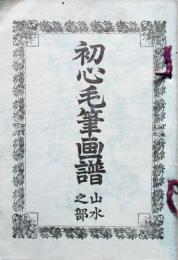 初心毛筆画譜
山水
之部